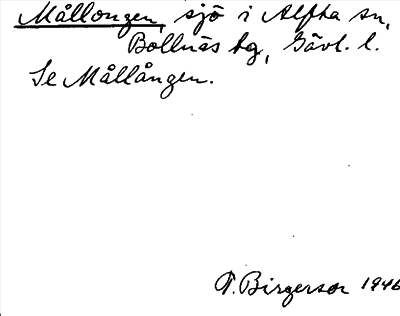 Mållongen, sjö i Alfta sn,
Bollnäs tg, Gävl. l.
Se Mållången.
T. Birgerson 1946